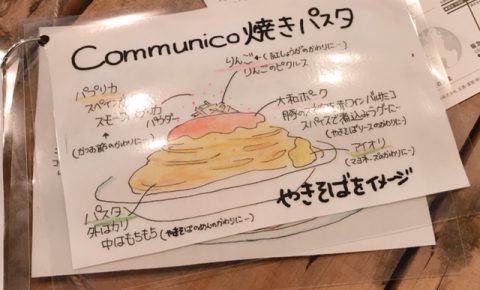 Communico焼きパスタ
りんご←(紅しょうがのかわりにー)
りんごのピクルス
パプリカ
スペイン
スモーク パプリカ
パウダー
(かつお節のかわりにー)
大和ポーク
赤ワイン
スパイスで煮込みラグーに
(やきそばソースのかわりにー)
アイオリ
(マヨネーズのかわりにー)
パスタ
外はカリ
中はもちもち(やきそばのめんのかわりにー)
やきそばをイメージ